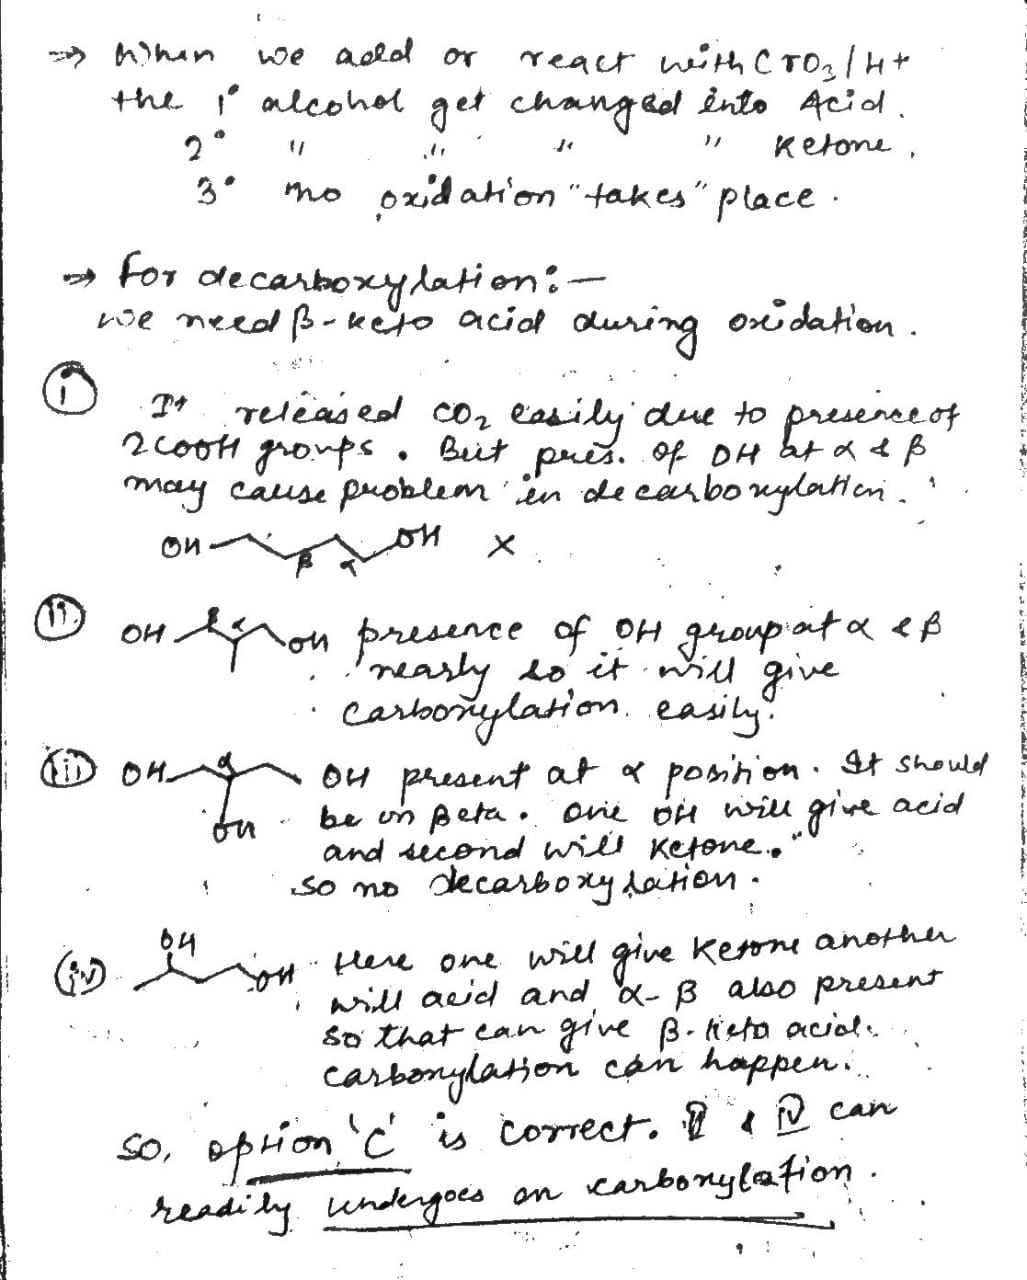 ⇒ When we add or react with CrO3/H+
the 1° alcohol get changed into Acid.
2° " " " " Ketone,
3° no oxidation "takes" place.
⇒ for decarboxylation:-
we need β-keto acid during oxidation.
(i) It released CO2 easily due to presence of
2COOH groups. But pres. of OH at α & β
may cause problem in decarboxylation.
OH β α OH ×
(ii) OH β α OH presence of OH group at α & β
nearly so it will give
carboxylation easily.
(iii) OH α OH OH present at α position. It should
be on Beta. One OH will give acid
and second will Ketone."
so no decarboxylation.
(iv) OH OH Here one will give Ketone another
will acid and α-β also present
so that can give β-keto acid.
carbonylation can happen.
So, option 'C' is correct. II & IV can
readily undergoes on carbonylation.